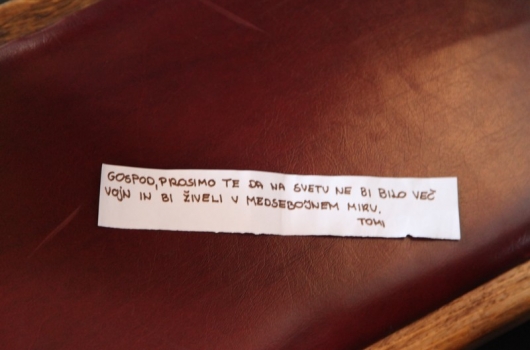 GOSPOD, PROSIMO TE DA NA SVETU NE BI BILO VEČ
VOJN IN BI ŽIVELI V MEDSEBOJNEM MIRU.
TOMI